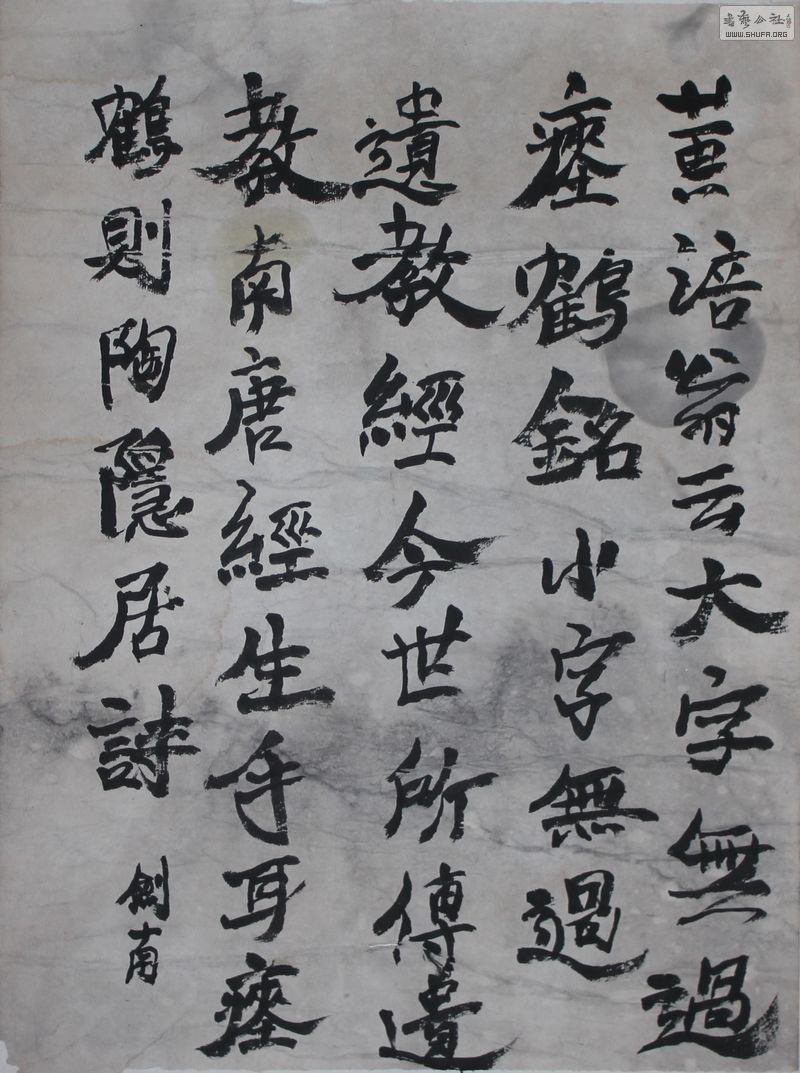 黄涪翁云大字無過
瘞鶴銘小字無過
遺教經今世所傳遺
教南唐經生手耳瘞
鶴則陶隱居詩
劍南
書藝公社
WWW.SHUFA.ORG